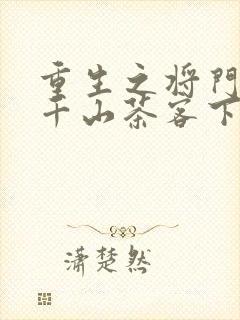 重生之将门
千山茶客下
潇楚然